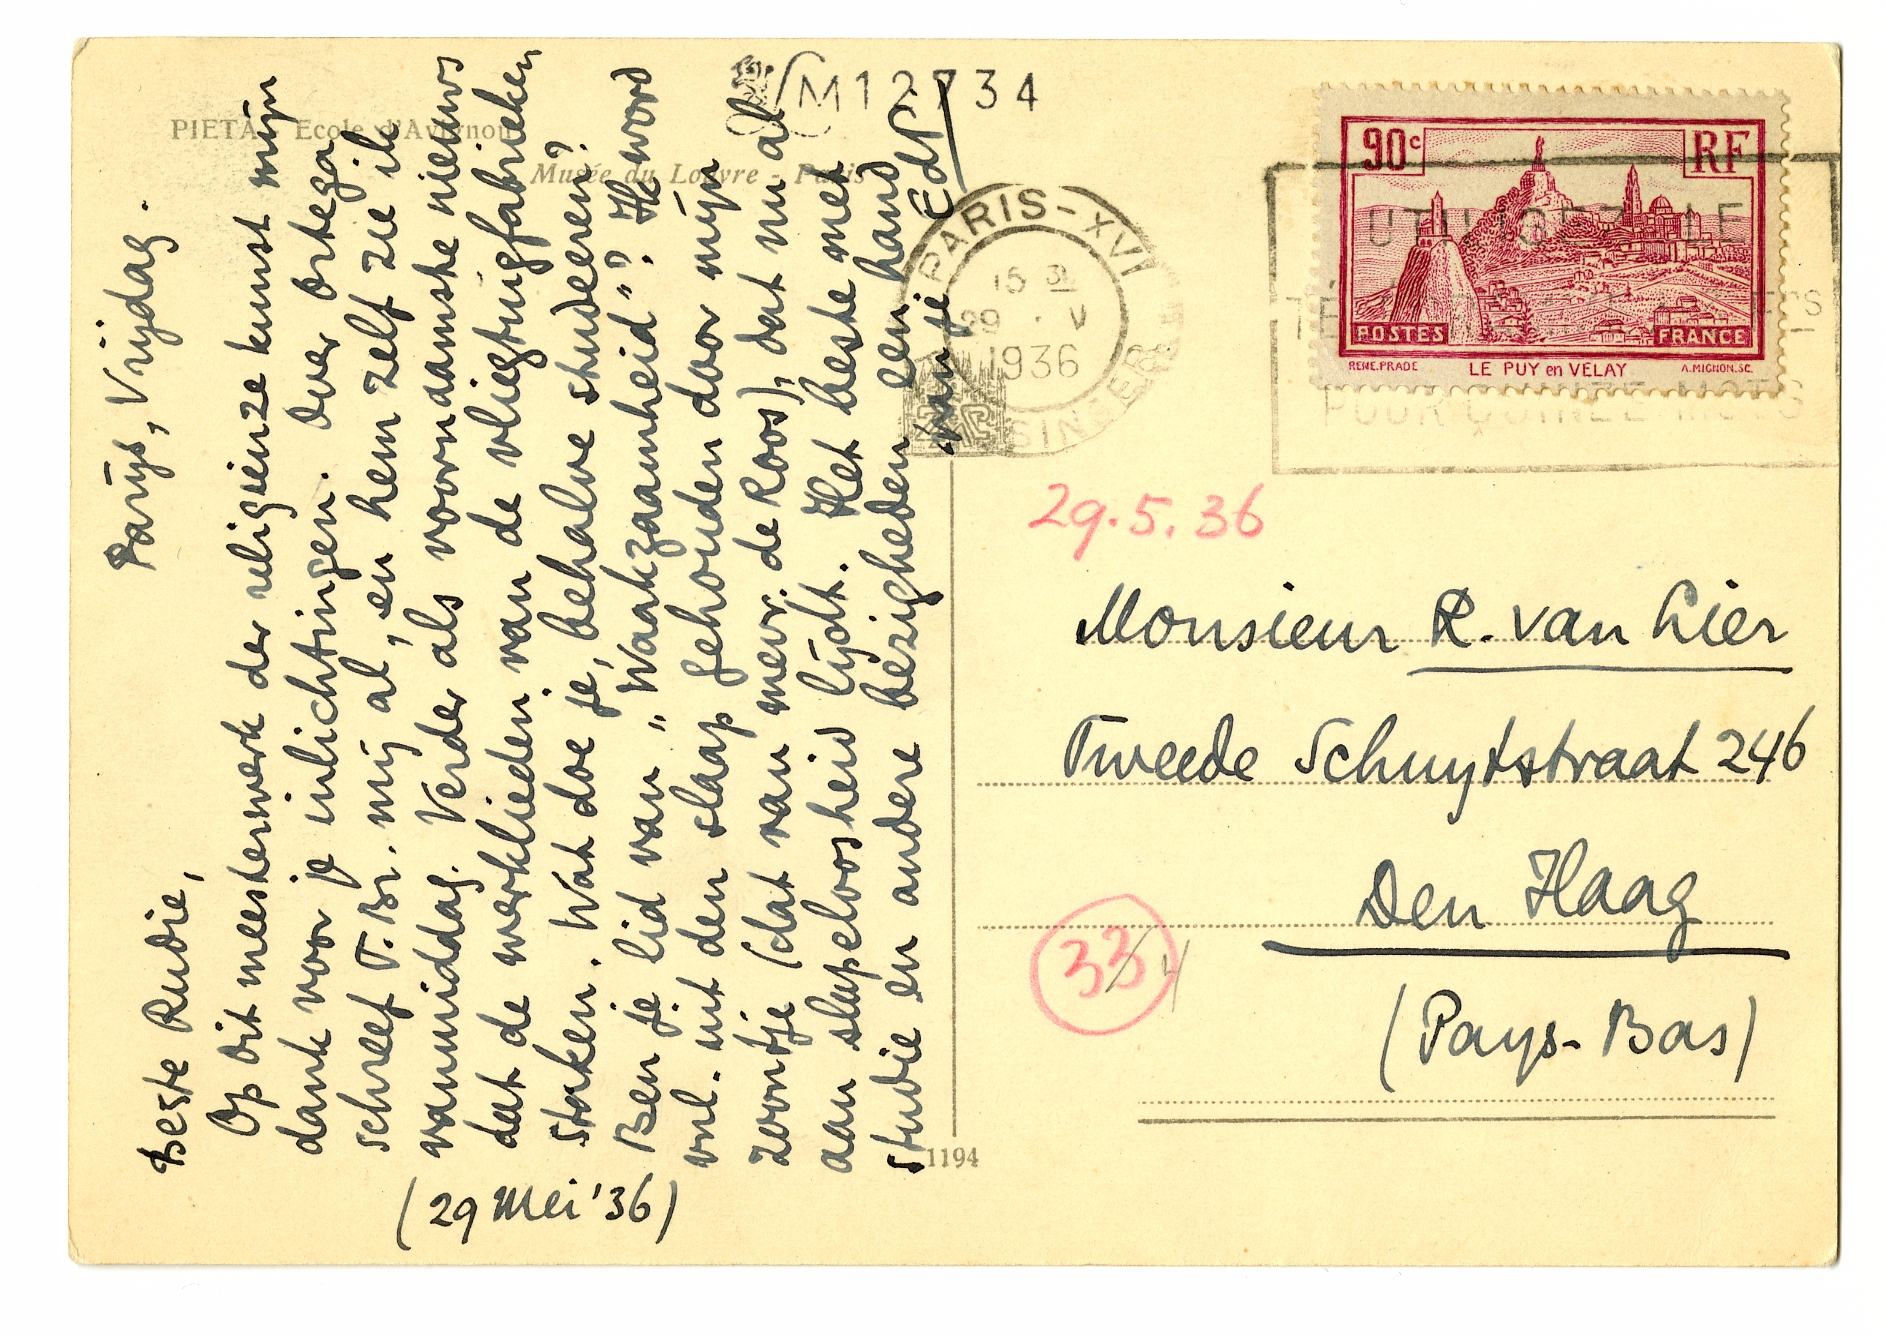 PIETA - Ecole d'Avignon
Musée du Louvre - Paris
M12734
Parijs, Vrijdag.
Beste Rudie,
Op dit meesterwerk der religieuze kunst mijn
dank voor je inlichtingen. Over Ortega
schreef T. Br. mij al, en hem zelf zie ik
vanmiddag. Verder als voornaamste nieuws
dat de werklieden van de vliegtuigfabrieken
staken. Wat doe je, behalve studeeren?
Ben je lid van "Waakzaamheid"? Ik word
vnl. uit den slaap gehouden door mijn
zoontje (dat van mevr. de Roos), dat nu al
aan slapeloosheid lijdt. Het beste met
studie en andere bezigheden een hand
van je EdP.
(29 Mei '36)
1194
PARIS-XVI
15
29 · V
1936
SINGER
90c
RF
POSTES
FRANCE
RENE.PRADE
LE PUY en VELAY
A.MIGNON.SC.
UTILISEZ LE
POUR QUINZE MOTS
29.5.36
Monsieur R. van Lier
Tweede Schuytstraat 246
Den Haag
(Pays-Bas)
33
4